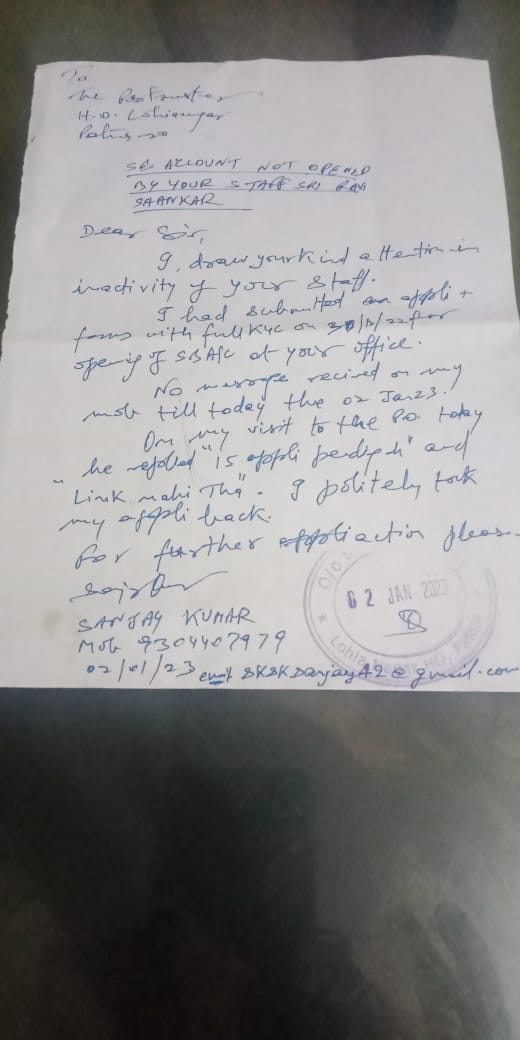 To
The Postmaster
H.O. Lohianagar
Patna-20
SB ACCOUNT NOT OPENED
BY YOUR STAFF SRI RAVI
SHANKAR
Dear Sir,
I, draw your kind attention in
inactivity of your staff.
I had submitted an appli +
forms with full KYC on 30/12/22 for
opening of SB A/c at your office.
No message recived on my
mob till today the 02 Jan 23.
On my visit to the P.O. today
he replied "15 appli pending" and
"Link nahi Tha". I politely took
my appli back.
For further action pleas.
SANJAY KUMAR
Mob 9304407979
02/01/23 email SKSKsanjay42@gmail.com
02 JAN 2023